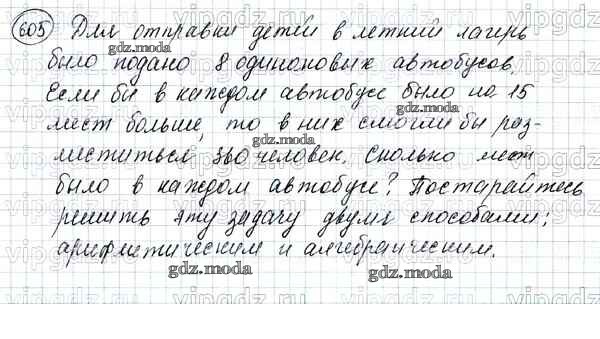 605 Для отправки детей в летний лагерь
было подано 8 одинаковых автобусов.
Если бы в каждом автобусе было на 15
мест больше, то в них смогли бы раз-
меститься 360 человек. Сколько мест
было в каждом автобусе? Постарайтесь
решить эту задачу двумя способами:
арифметическим и алгебраическим.
gdz.moda